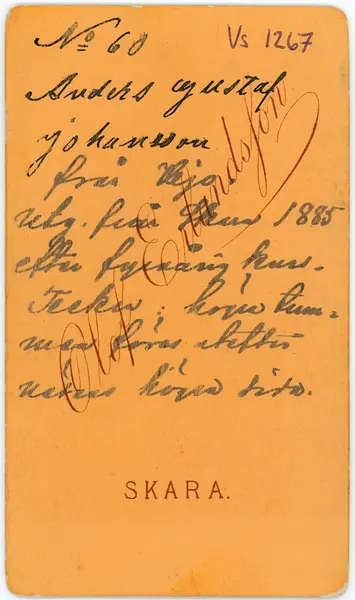 No 60
Vs 1267
Anders Gustaf
Johansson
från Hjo
utg. från Skara 1885
efter fyraårig kurs.
Tecken: högra tum-
men föres utefter
näsans högra sida.
Olof Erlandsson
SKARA.